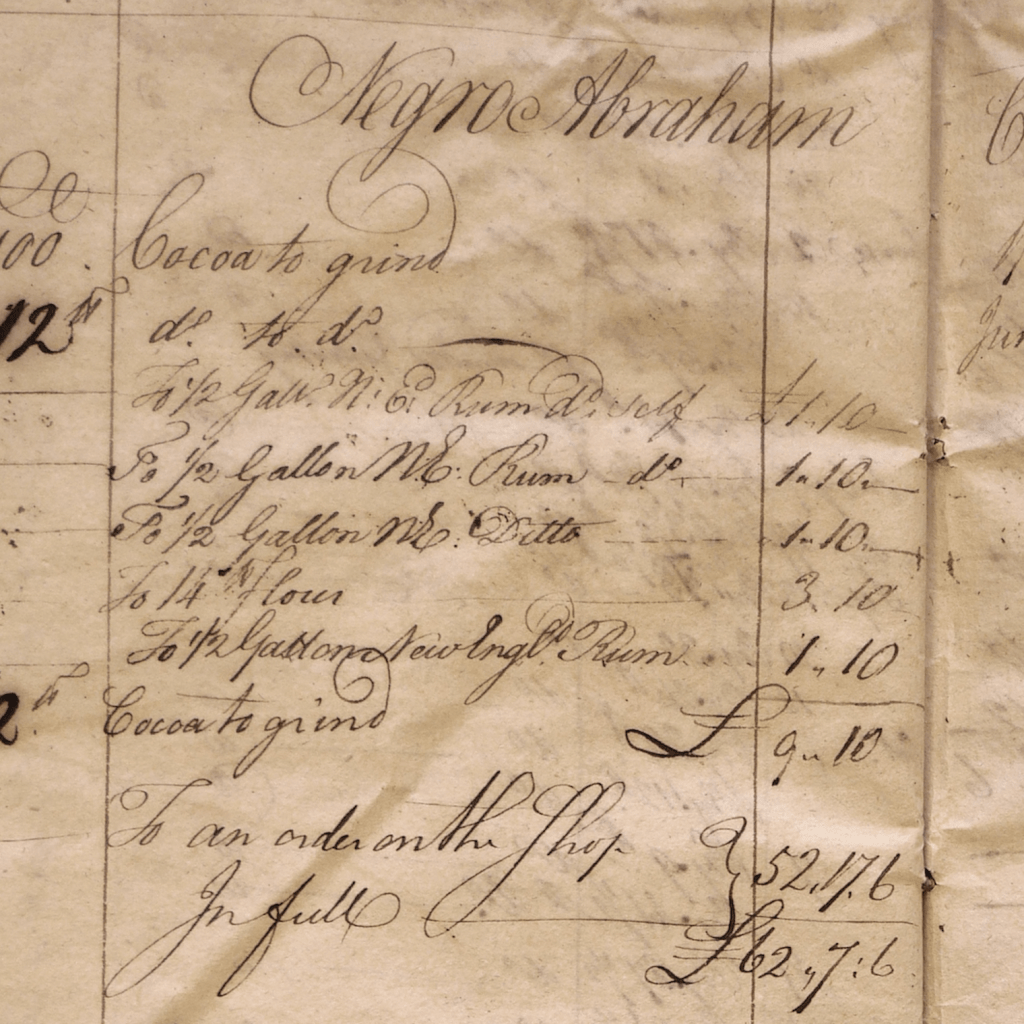 Negro Abraham
100. Cocoa to grind
12 w do. to do.
To 1/2 Gall. N: Ed Rum do. self £1:10
To 1/2 Gallon NE: Rum do 1"10"
To 1/2 Gallon NE: Ditto 1"10"
To 14 w flour 3"10
To 1/2 Gallon New Engld. Rum 1"10
2 w. Cocoa to grind
£ 9"10
To an order on the Shop
In full 52,17,6
£62"7:6
Jun